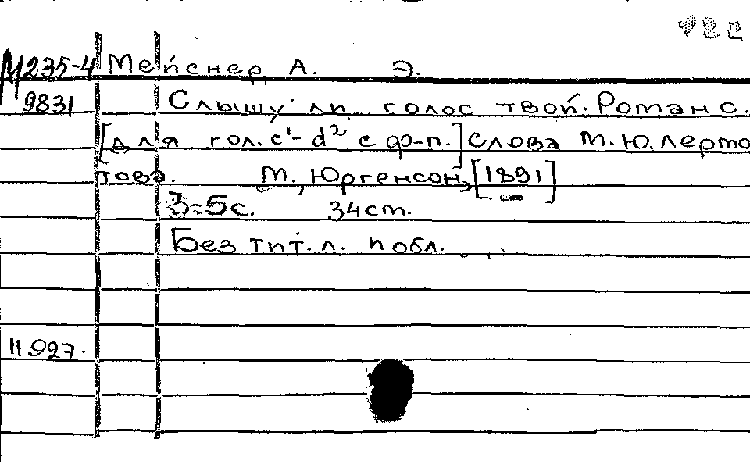 М235-4 Мейснер А. Э.
9831 Слышу ли голос твой. Романс.
[для гол. c¹-d² с ф-п.] Слова М.Ю.Лермон
това. М., Юргенсон, [1891]
3-5с. 34ст.
Без тит.л. и обл.
11.927.